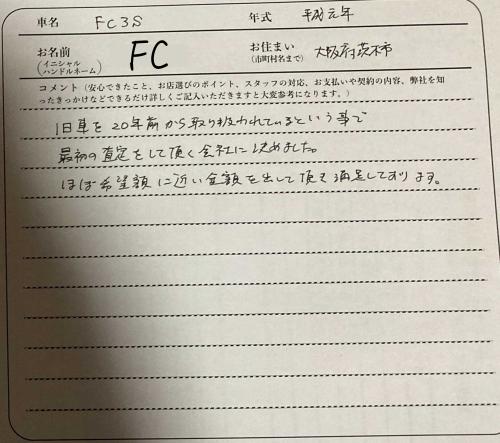 車名 FC3S 年式 平成元年
お名前 (イニシャル ハンドルネーム) FC お住まい (市町村名まで) 大阪府茨木市
コメント（安心できたこと、お店選びのポイント、スタッフの対応、お支払いや契約の内容、弊社を知
ったきっかけなどできるだけ詳しくご記入いただきますと大変参考になります。）
旧車を20年前から取り扱われているという事で
最初の査定をして頂く会社に決めました。
ほぼ希望額に近い金額を出して頂き満足しております。